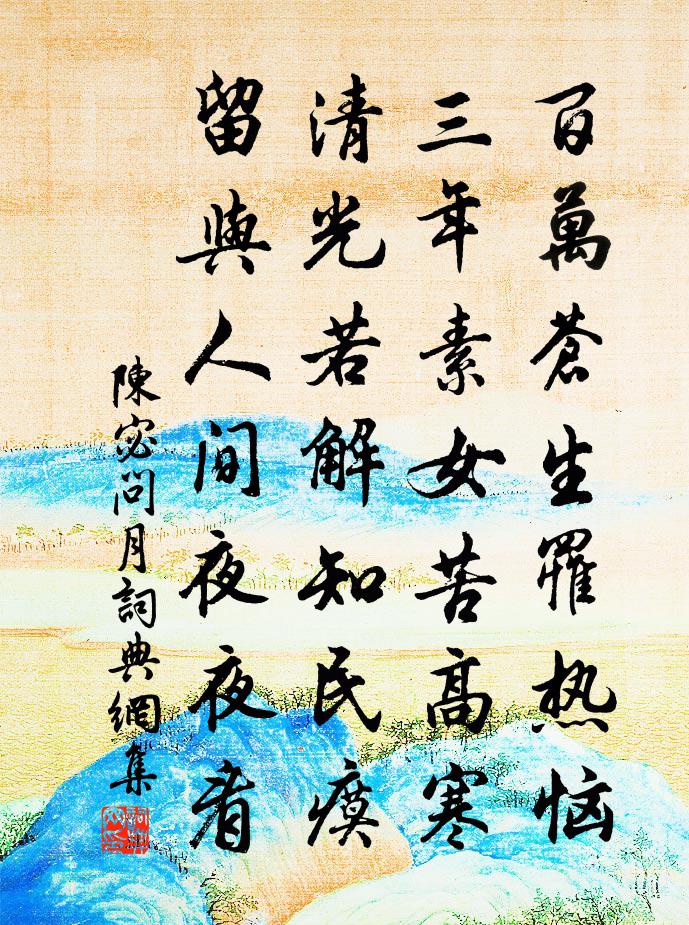 百萬蒼生罹热恼
三年素女苦高寒
清光若解知民瘼
留與人間夜夜看
陳宓問月詞典網集